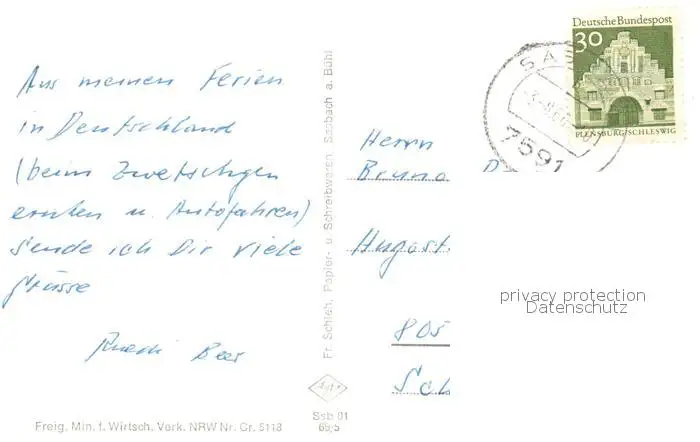 Aus meinen Ferien
in Deutschland
(beim Zwetschgen
ernten u. Autofahren)
sende ich Dir viele
Grüsse
Ruedi
Fr. Schlieh, Papier- u. Schreibwaren, Sasbach a. Bühl
Ssb 81
69/5
Freig. Min. f. Wirtsch. Verk. NRW Nr. Cr. 5118
Deutsche Bundespost
30
FLENSBURG/SCHLESWIG
SAS
7591
Herrn
Bruno
Hugost
805
privacy protection
Datenschutz